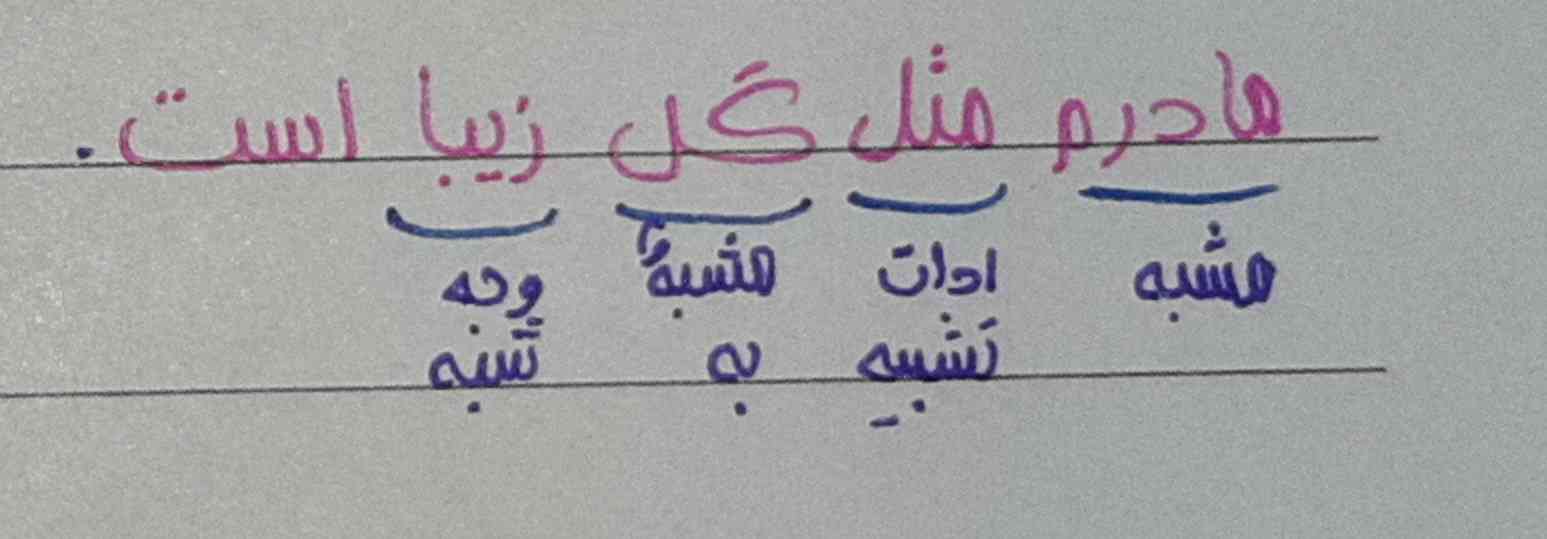 مادرم مثل گل زیبا است.
مشبه ادات مشبهٌ وجه
تشبیه به شبه